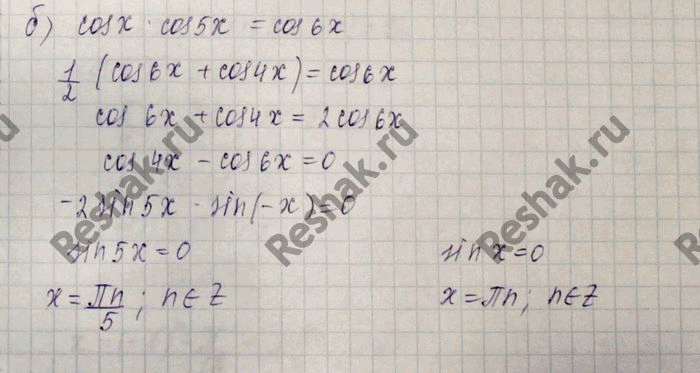 б) cosx · cos5x = cos6x
1/2 (cos6x + cos4x) = cos6x
cos 6x + cos4x = 2cos6x
cos 4x - cos 6x = 0
-2 sin5x · sin(-x) = 0
sin5x = 0 sin x = 0
x = πn/5 ; n∈Z x = πn ; n∈Z
Reshak.ru
Reshak.ru
Reshak.ru
Reshak.ru